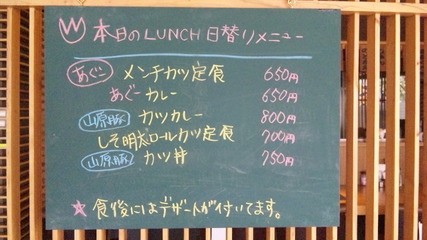 本日のLUNCH日替りメニュー
あぐー メンチカツ定食 650円
あぐーカレー 650円
山原豚 カツカレー 800円
しそ明太ロールカツ定食 700円
山原豚 カツ丼 750円
★食後にはデザートが付いてます。